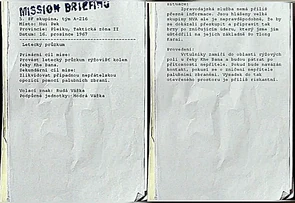 MISSION BRIEFING
5. SF skupina, tým A-216
Místo: Hui Dek
Provincie: Pleiku, Taktická zóna II
Datum: 16. prosince 1967
Letecký průzkum
Primární cíl mise:
Provést letecký průzkum rýžovišť kolem
řeky Khe Bana.
Sekundární cíl mise:
Zlikvidovat případnou nepřátelskou
opozici pomocí palubních zbraní.
Volací znak: Rudá Vážka
Podpůrné jednotky: Modrá Vážka
Situace:
Zpravodajská služba nemá příliš
přesné informace. Jsou hlášeny velké
skupiny NVA ale je nepravděpodobné, že by
se dokázali přeskupit a připravit tak
brzy po zničujícím úderu, který jsme jim
uštědřili na jejich základně po Tlong
Karai.
Provedení:
Vrtulníky zamíří do oblasti rýžových
polí u řeky Khe Bana a budou pátrat po
přítomnosti nepřítele. Pokud bude navázán
kontakt, pokusí se o zničení nepřítele
palubními zbraněmi. Výsadek do tak
otevřeného prostoru je příliš riskantní.